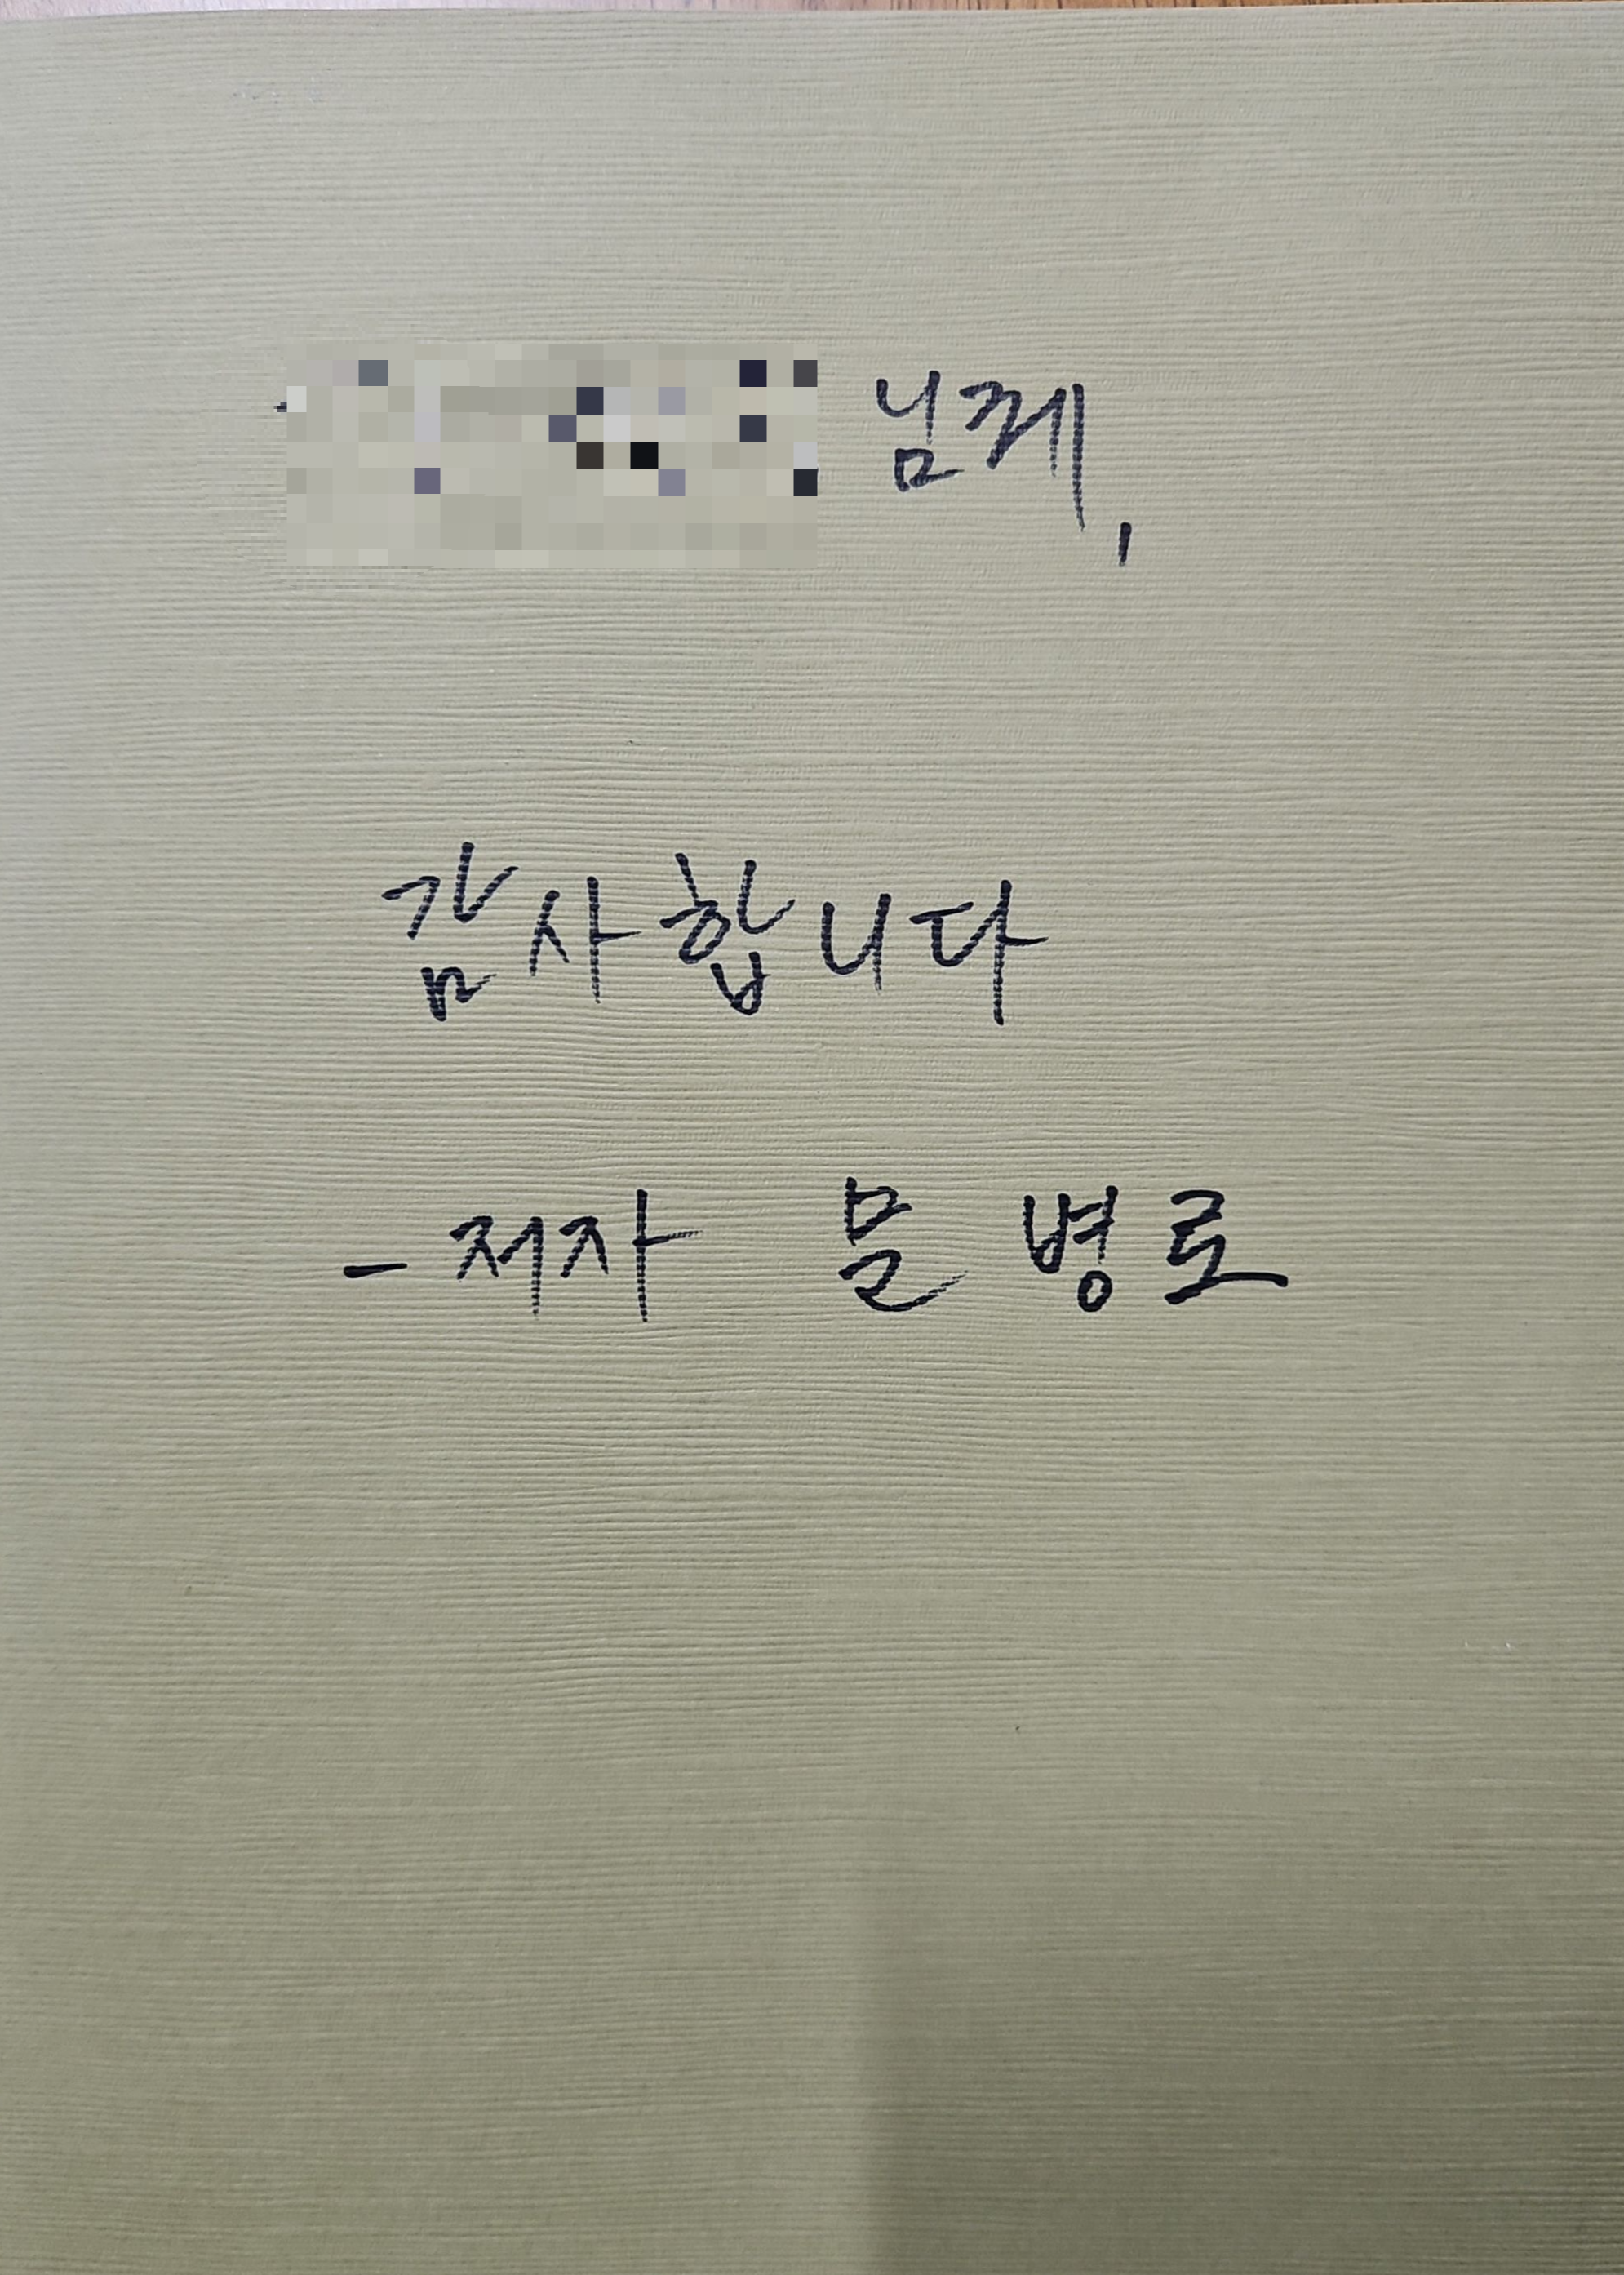 님께,
감사합니다
- 저자 문병로